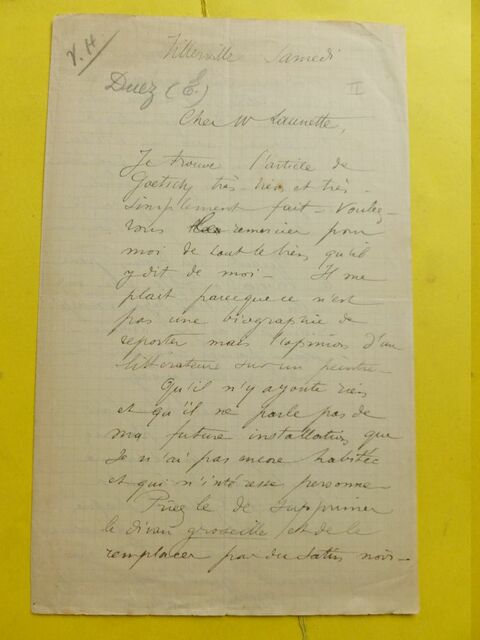 V. H
Villerville Samedi
Duez (E.)
II
Cher Mr Launette,
Je trouve l'article de
Goetschy très-bien et très-
simplement fait - Voulez-
vous remercier pour
moi de tout le bien qu'il
y dit de moi - Il me
plait parceque ce n'est
pas une biographie de
reporter mais l'opinion d'un
littérateur sur un peintre -
Qu'il n'y ajoute rien
et qu'il ne parle pas de
ma future installation que
Je n'ai pas encore habitée
et qui n'intéresse personne -
Priez le de supprimer
le divan groseille et de le
remplacer par du satin noir -